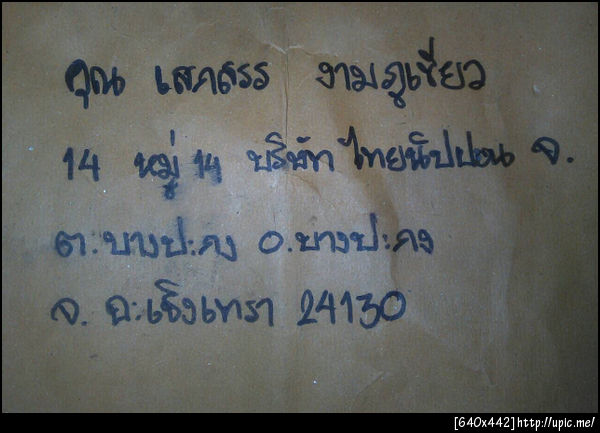 คุณ เสกสรร งามภูเขียว
14 หมู่ 14 บริษัท ไทยนิปปอน จ.
ต.บางปะกง อ.บางปะกง
จ. ฉะเชิงเทรา 24130
[640x442]http://upic.me/